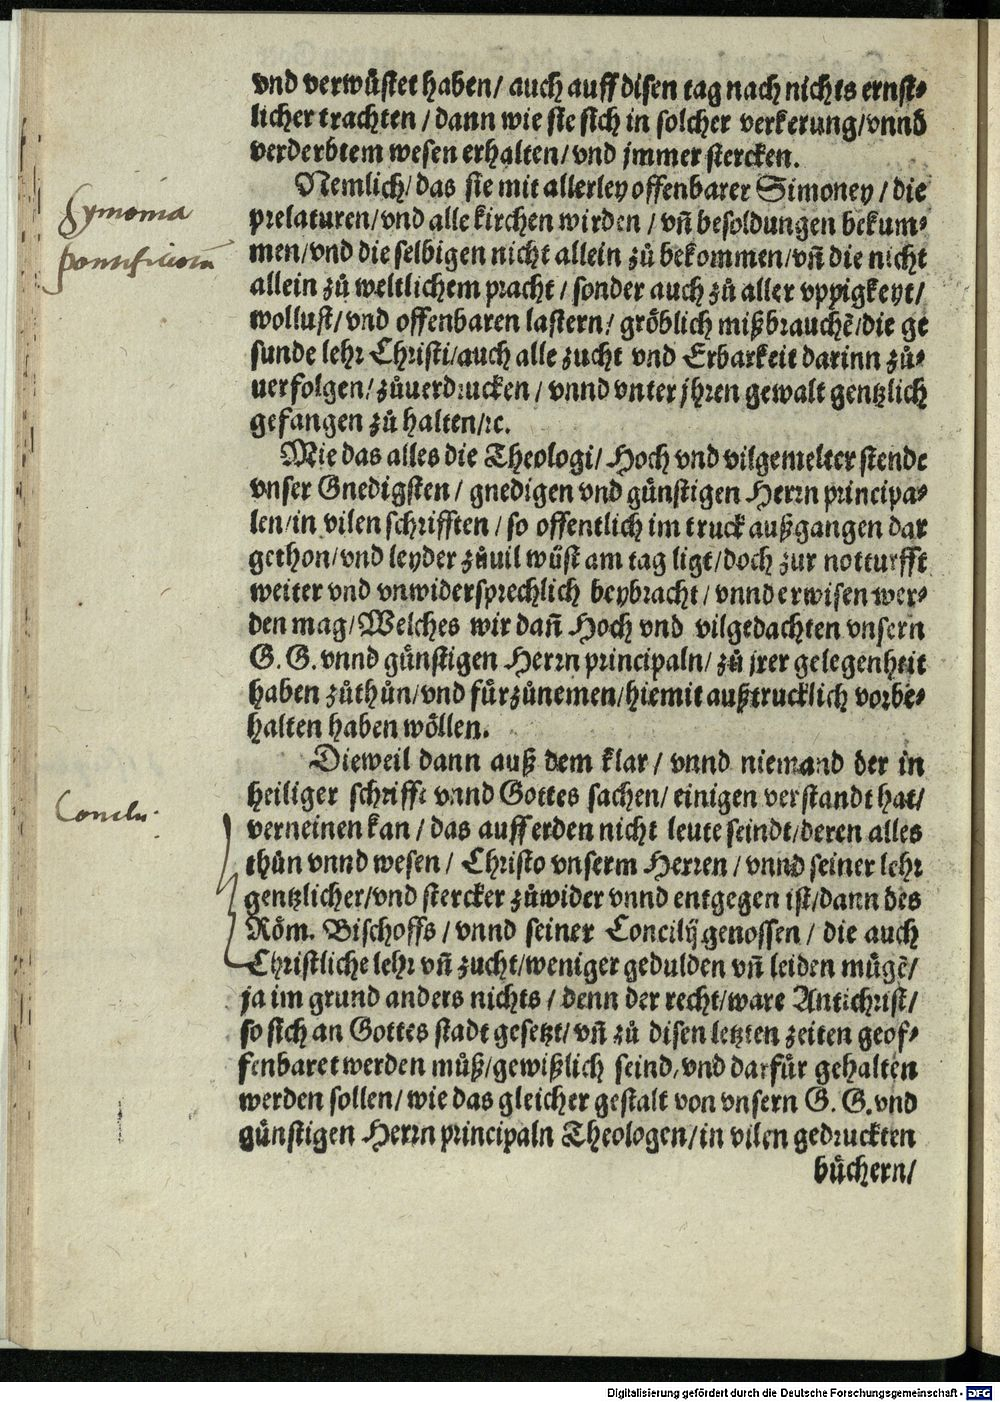 vnd verwüstet haben/ auch auff disen tag nach nichts ernst⸗
licher trachten / dann wie sie sich in solcher verkerung/vnnd
verderbtem wesen erhalten/ vnd jmmer stercken.
Nemlich/ das sie mit allerley offenbarer Simoney / die
Symonia
prelaturen/vnd alle kirchen wirden / vñ besoldungen bekum⸗
pontificiorū
men/vnd die selbigen nicht allein zů bekommen/vñ die nicht
allein zů weltlichem pracht / sonder auch zů aller vppigkeyt/
wollust/ vnd offenbaren lastern/ gröblich mißbrauchē/die ge
sunde lehr Christi/auch alle zucht vnd Erbarkeit darinn zů⸗
uerfolgen/ zůuerdrucken / vnnd vnter jhren gewalt gentzlich
gefangen zů halten/ꝛc.
Wie das alles die Theologi/ Hoch vnd vilgemelter stende
vnser Gnedigsten / gnedigen vnd günstigen Herrn principa⸗
len/in vilen schrifften / so offentlich im truck außgangen dar
gethon/vnd leyder zůuil wüst am tag ligt/doch zur notturfft
weiter vnd vnwidersprechlich beybracht / vnnd erwisen wer⸗
den mag/Welches wir dañ Hoch vnd vilgedachten vnsern
G. G. vnnd günstigen Herrn principaln/ zů jrer gelegenheit
haben zůthůn/vnd fürzůnemen/hiemit außtrucklich vorbe⸗
halten haben wöllen.
Dieweil dann auß dem klar / vnnd niemand der in
heiliger schrifft vnnd Gottes sachen/ einigen verstandt hat/
Conclu.
verneinen kan / das auff erden nicht leute seindt/deren alles
thůn vnnd wesen / Christo vnserm Herren / vnnd seiner lehr
gentzlicher/vnd stercker zůwider vnnd entgegen ist/dann des
Röm. Bischoffs / vnnd seiner Concilij genossen / die auch
Christliche lehr vñ zucht/weniger gedulden vñ leiden mügē/
ja im grund anders nichts / denn der recht/ware Antichrist/
so sich an Gottes stadt gesetzt/ vñ zů disen letzten zeiten geof⸗
fenbaret werden můß/gewißlich seind/vnd darfür gehalten
werden sollen/ wie das gleicher gestalt von vnsern G. G. vnd
günstigen Herrn principaln Theologen/ in vilen gedruckten
büchern/
Digitalisierung gefördert durch die Deutsche Forschungsgemeinschaft - DFG